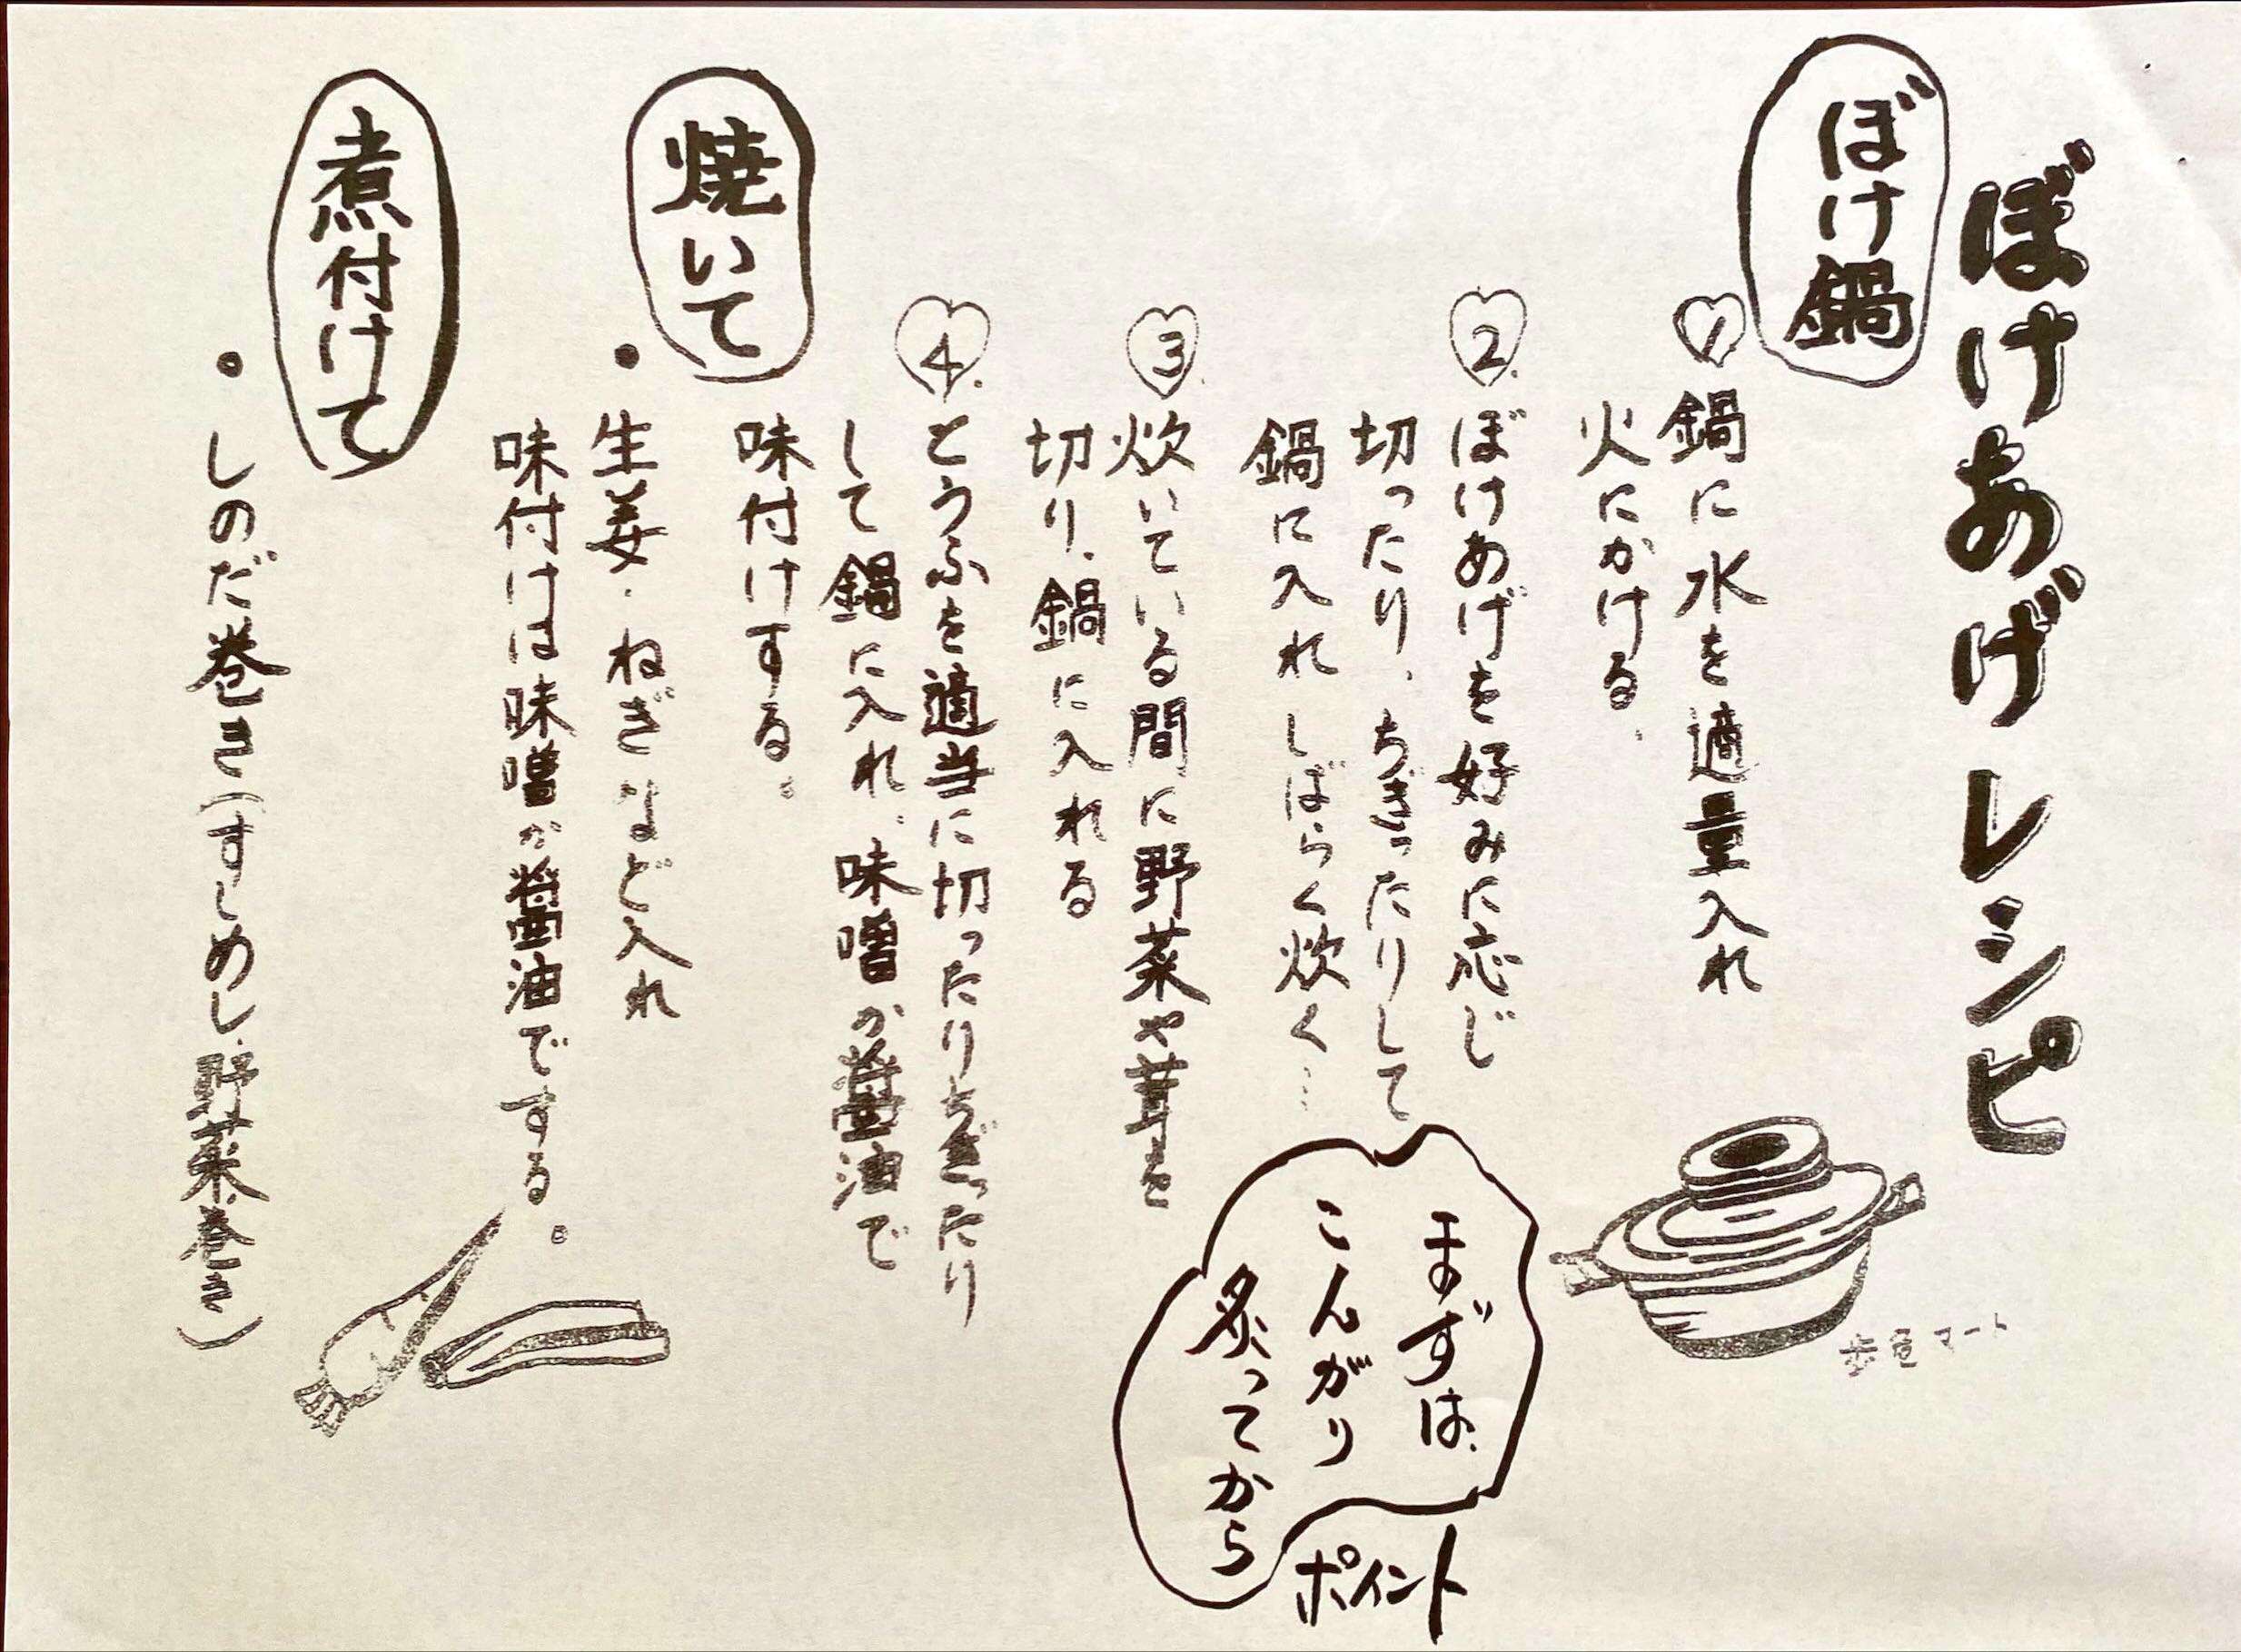 ぼけあげレシピ
ぼけ鍋
1 鍋に水を適量入れ
火にかける、
2. ぼけあげを好みに応じ
切ったり、ちぎったりして
鍋に入れしばらく炊く…
3. 炊いている間に野菜や茸を
切り、鍋に入れる
4. とうふを適当に切ったりちぎったり
して鍋に入れ、味噌か醤油で
味付けする。
まずは、
こんがり
炙ってから
ポイント
焼いて
• 生姜・ねぎなど入れ
味付けは味噌か醤油でする。
煮付けて
• しのだ巻き(すしめし、野菜、巻き)
マート